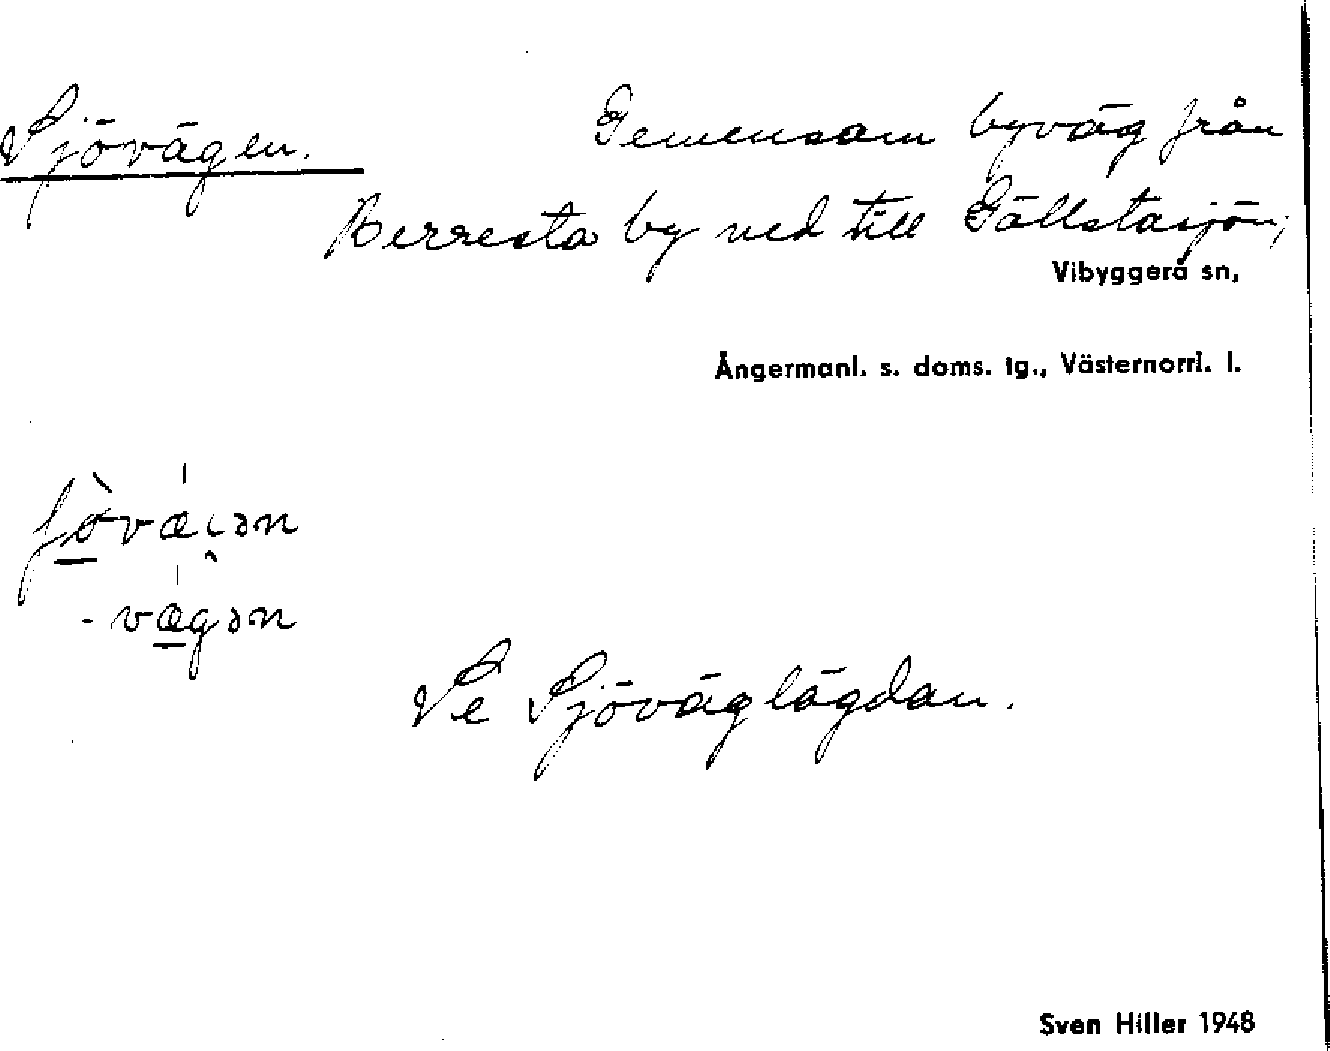 Sjövägen.
Gemensam byväg från
Berresta by ned till Gällstasjön,
Vibyggerå sn,
Ångermanl. s. doms. tg., Västernorrl. l.
-vægən
Se Sjöväglägdan.
Sven Hiller 1948